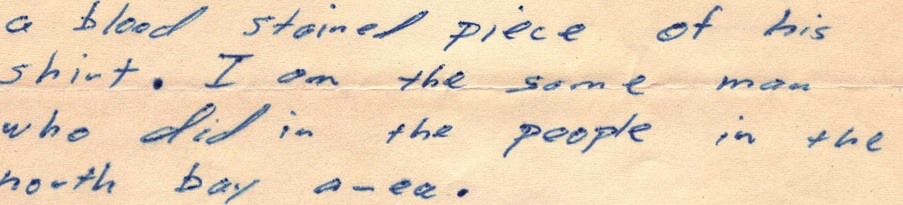 a blood stained piece of his
shirt. I am the same man
who did in the people in the
north bay area.